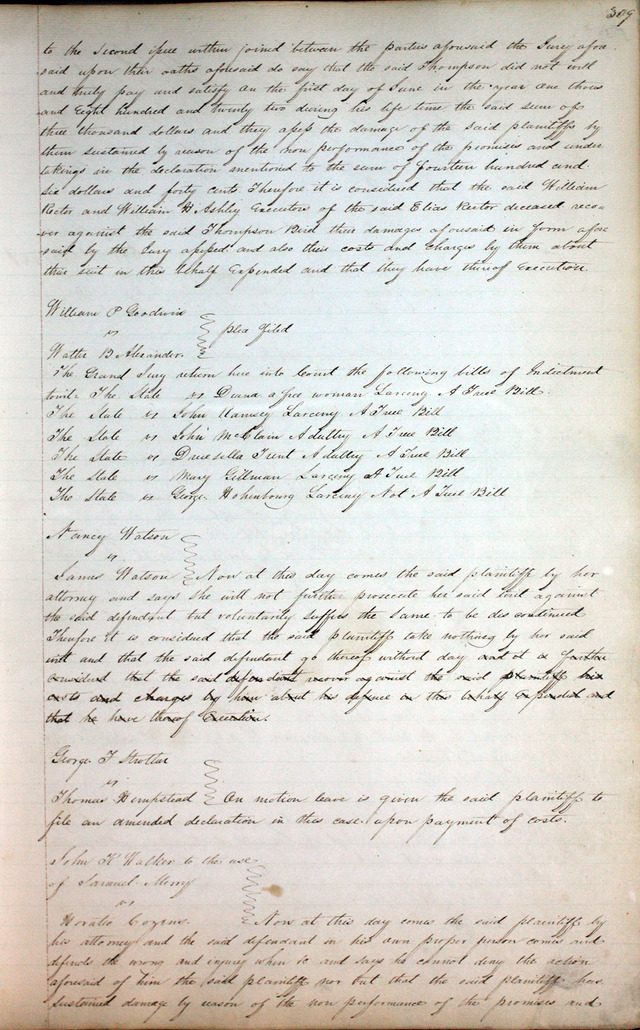 309
to the Second issue within joined between the parties aforesaid the Jury afore
said upon their oaths aforesaid do say that the said Thompson did not well
and truly pay and satisfy on the first day of June in the year one thous
and Eight hundred and twenty two during his life time the said sum of
three thousand dollars and they assess the damage of the said plaintiffs by
them sustained by reason of the non performance of the promises and under
takings in the declaration mentioned to the sum of fourteen hundred and
six dollars and forty cents Therefore it is considered that the said William
Rector and William H Ashley Executors of the said Elias Rector deceased reco-
ver against the said Thompson Bird their damages aforesaid in form afore
said by the Jury assessed and also their costs and charges by them about
their suit in this behalf Expended and that they have thereof Execution.
William P Goodwin
vs
plea filed
Walter B Alexander
The Grand Jury return here into Court the following bills of Indictment
towit. The State vs Diana a free woman Larceny A True Bill.
The State vs John Ramsey Larceny A True Bill
The State vs John McClain Adultry A True Bill
The State vs Drusella Trent Adultry A True Bill
The State vs Mary Gillman Larceny A True Bill
The State vs George Hohenbourg Larceny Not A True Bill
Nancy Watson
vs
James Watson Now at this day comes the said plaintiff by her
attorney and says she will not further prosecute her said suit against
the said defendant but voluntarily suffers the same to be dis continued
Therefore it is considered that the said plaintiff take nothing by her said
writ and that the said defendant go thereof without day and it is further
considered that the said defendant recover against the said plaintiff his
costs and charges by him about his defence in this behalf Expended and
that he have thereof Execution.
George F Strother
vs
Thomas Hempstead On motion leave is given the said plaintiff to
file an amended declaration in this case upon payment of costs.
John K Walker to the use
of Samuel Merry
vs
Horatio Cozens. Now at this day comes the said plaintiff by
his attorney and the said defendant in his own proper person comes and
defends the wrong and injury when &c and says he cannot deny the action
aforesaid of him the said plaintiff nor but that the said plaintiff has
sustained damage by reason of the non performance of the promises and